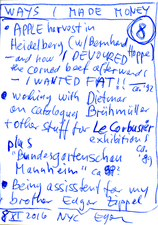 WAYS I MADE MONEY
8
• APPLE harvest in
Heidelberg (w/Bernhard Hoppe)
- and how I DEVOURED
the corned beef afterwards
- I WANTED FAT!! ca. '92
• working with Dietmar
on catalogues Brühmüller
+ other stuff for Le Corbusier
exhibitions
plus ca. '89
"Bundesgartenschau
Mannheim" ca
• Being assistent for my
brother Edgar Zippel
8 XI 2016 NYC Egan